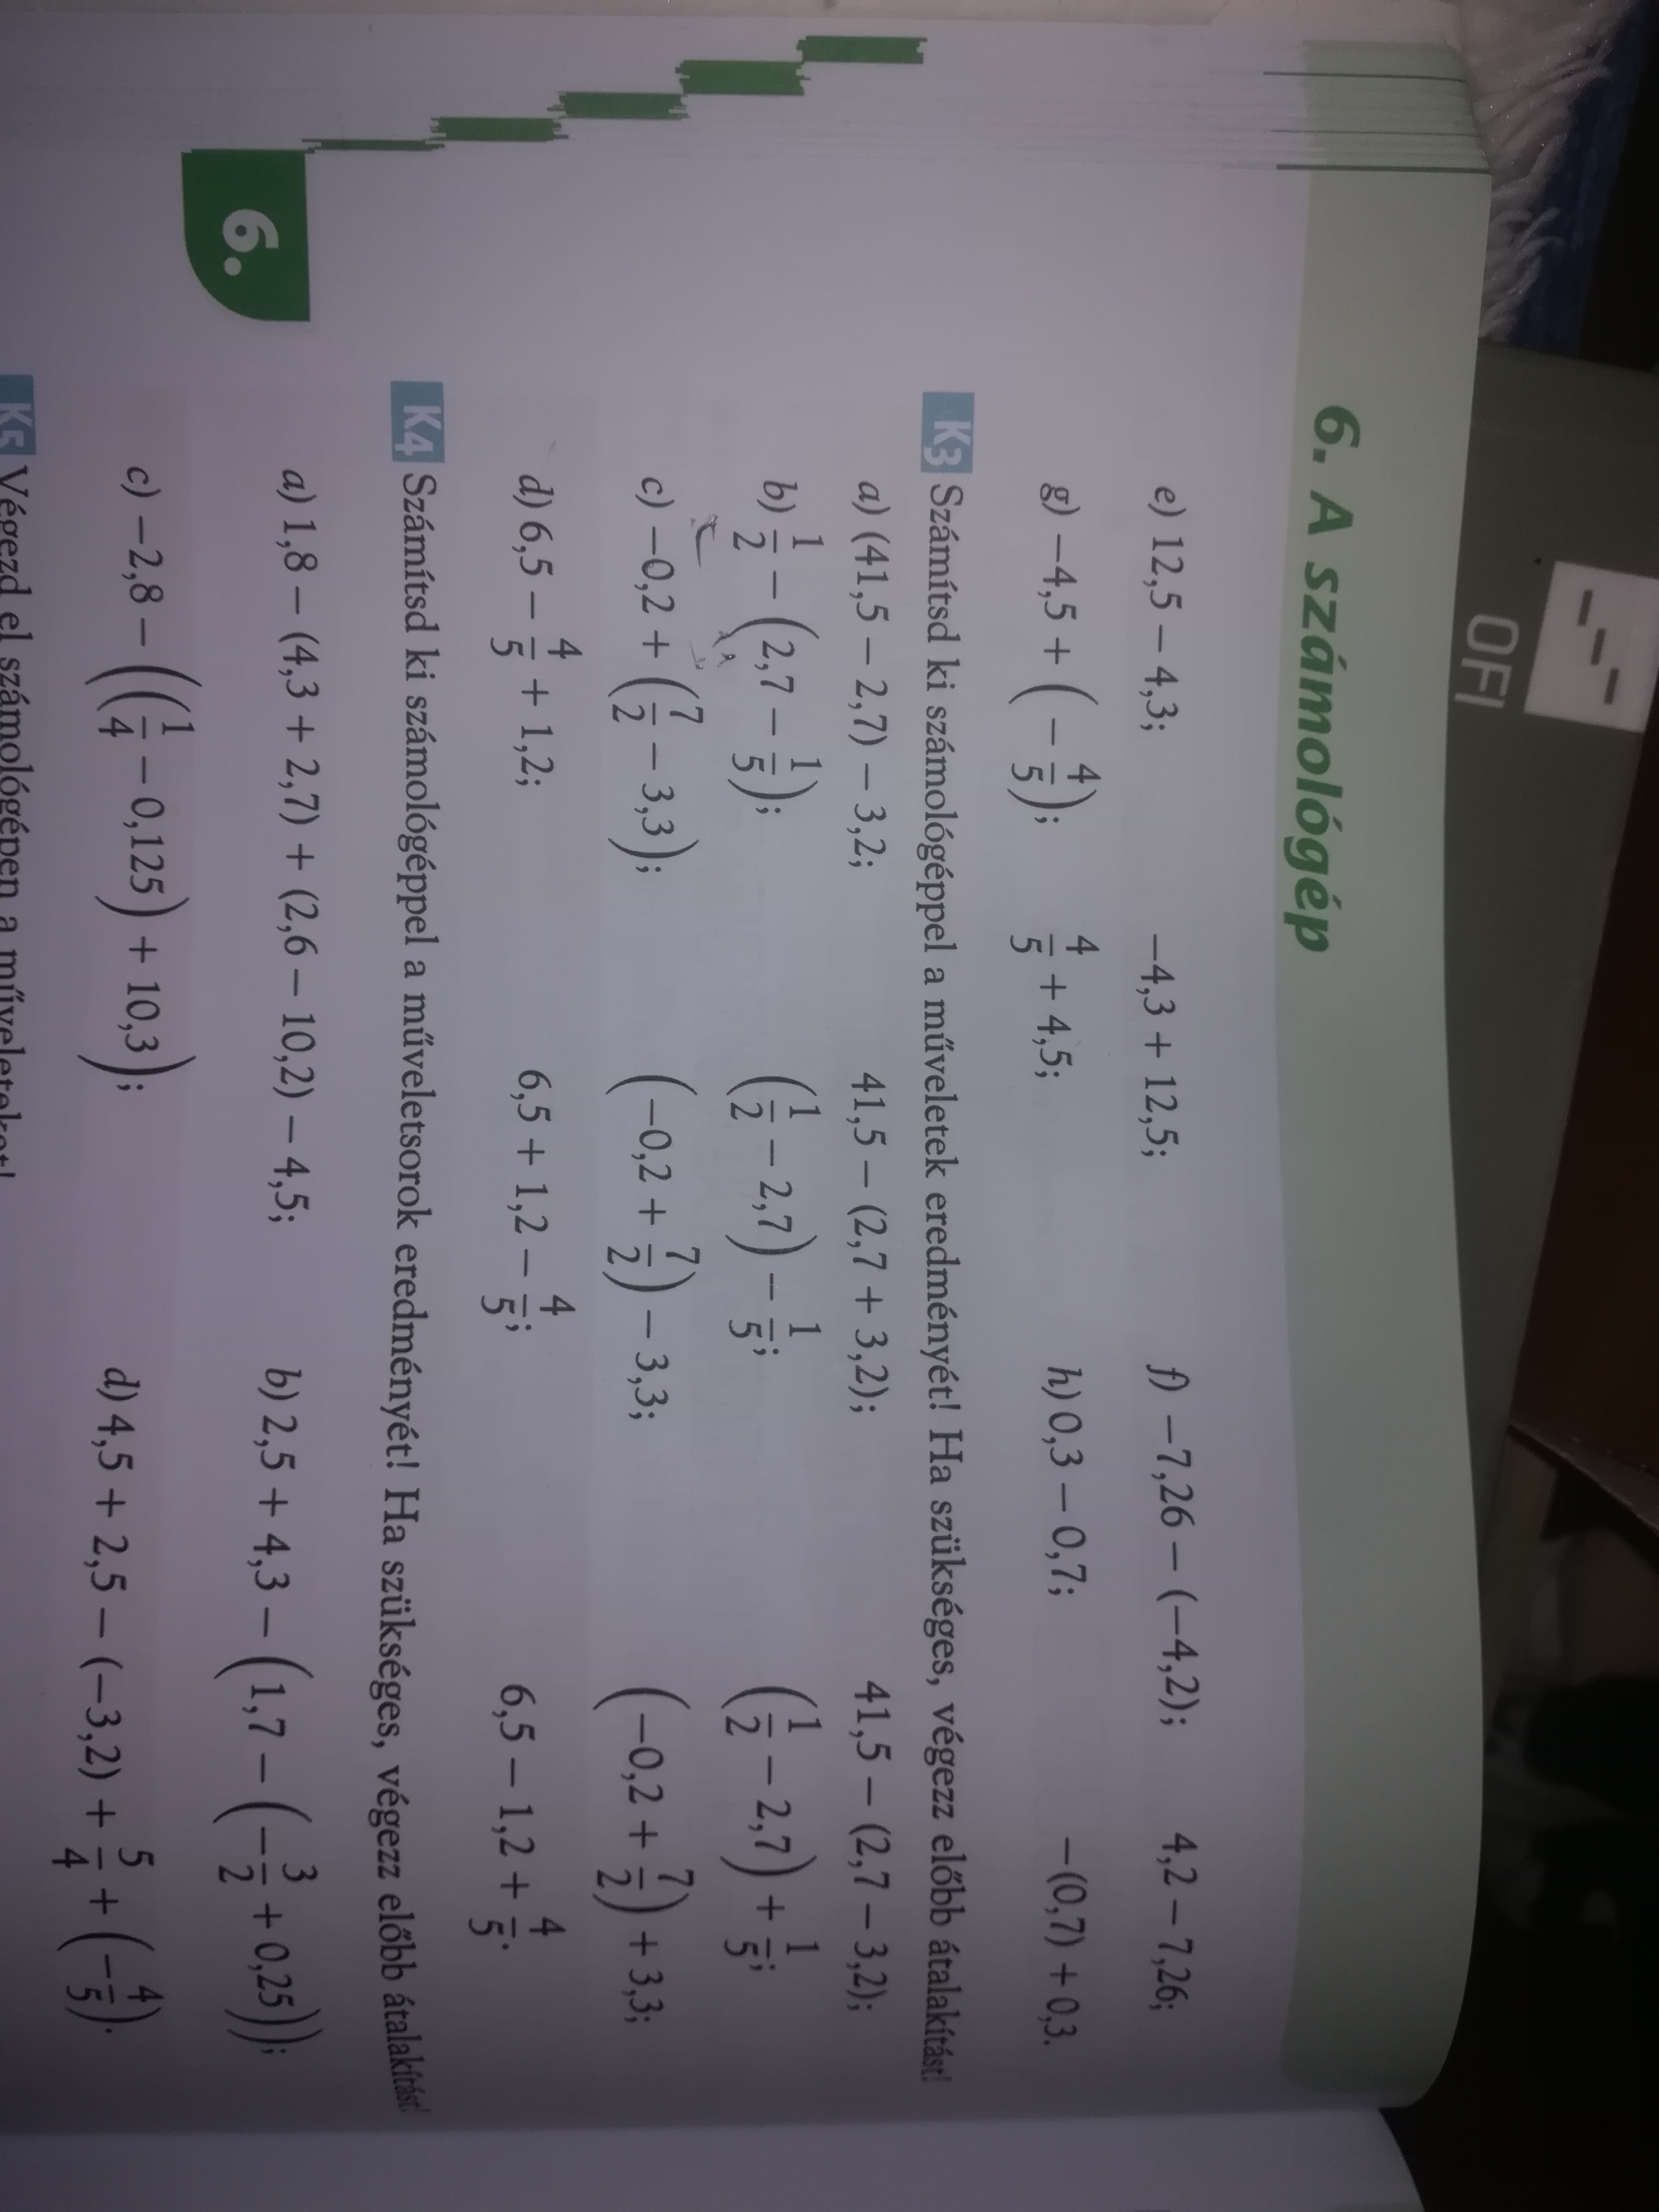 OFI
6. A számológép
e) 12,5 – 4,3; –4,3 + 12,5; f) –7,26 – (–4,2); 4,2 – 7,26;
g) –4,5 + (–4/5); 4/5 + 4,5; h) 0,3 – 0,7; –(0,7) + 0,3.
K3 Számítsd ki számológéppel a műveletek eredményét! Ha szükséges, végezz előbb átalakítást!
a) (41,5 – 2,7) – 3,2; 41,5 – (2,7 + 3,2); 41,5 – (2,7 – 3,2);
b) 1/2 – (2,7 – 1/5); (1/2 – 2,7) – 1/5; (1/2 – 2,7) + 1/5;
c) –0,2 + (7/2 – 3,3); (–0,2 + 7/2) – 3,3; (–0,2 + 7/2) + 3,3;
d) 6,5 – 4/5 + 1,2; 6,5 + 1,2 – 4/5; 6,5 – 1,2 + 4/5.
K4 Számítsd ki számológéppel a műveletsorok eredményét! Ha szükséges, végezz előbb átalakítást!
6.
a) 1,8 – (4,3 + 2,7) + (2,6 – 10,2) – 4,5; b) 2,5 + 4,3 – (1,7 – (–3/2 + 0,25));
c) –2,8 – ((1/4 – 0,125) + 10,3); d) 4,5 + 2,5 – (–3,2) + 5/4 + (–4/5).
K5 Végezd el számológépen a műveleteket!